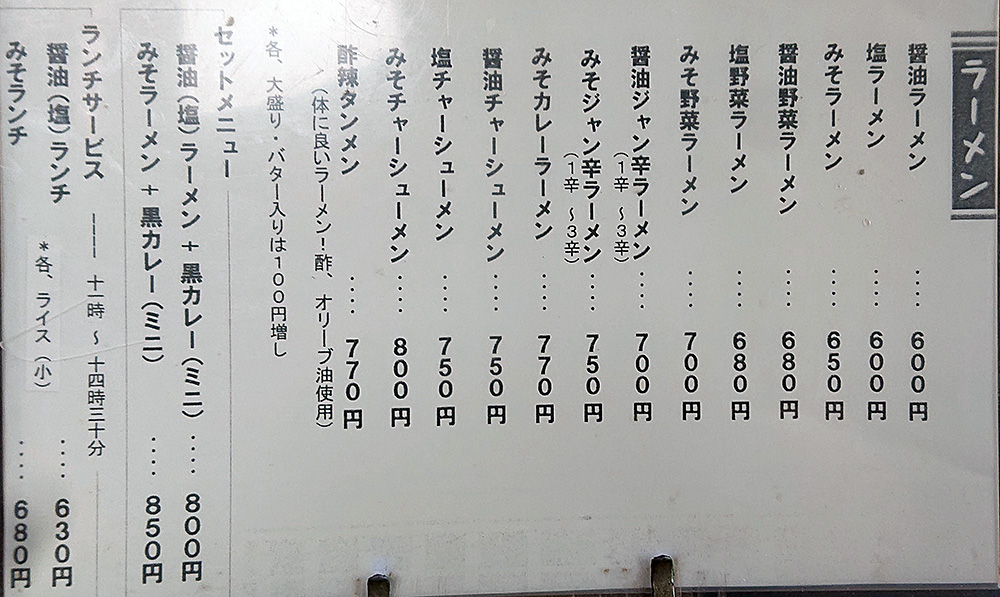 ラーメン
醤油ラーメン ‥‥ 600円
塩ラーメン ‥‥ 600円
みそラーメン ‥‥ 650円
醤油野菜ラーメン ‥‥ 680円
塩野菜ラーメン ‥‥ 680円
みそ野菜ラーメン ‥‥ 700円
醤油ジャン辛ラーメン ‥‥ 700円
(1辛 ～3辛)
みそジャン辛ラーメン ‥‥ 750円
(1辛 ～3辛)
みそカレーラーメン ‥‥ 770円
醤油チャーシューメン ‥‥ 750円
塩チャーシューメン ‥‥ 750円
みそチャーシューメン ‥‥ 800円
酢辣タンメン ‥‥ 770円
(体に良いラーメン！酢、オリーブ油使用)
*各、大盛り・バター入りは100円増し
セットメニュー
醤油(塩)ラーメン＋黒カレー(ミニ) ‥‥ 800円
みそラーメン＋黒カレー(ミニ) ‥‥ 850円
ランチサービス ―― 十一時 ～ 十四時三十分
醤油(塩)ランチ ‥‥ 630円
*各、ライス(小)
みそランチ ‥‥ 680円